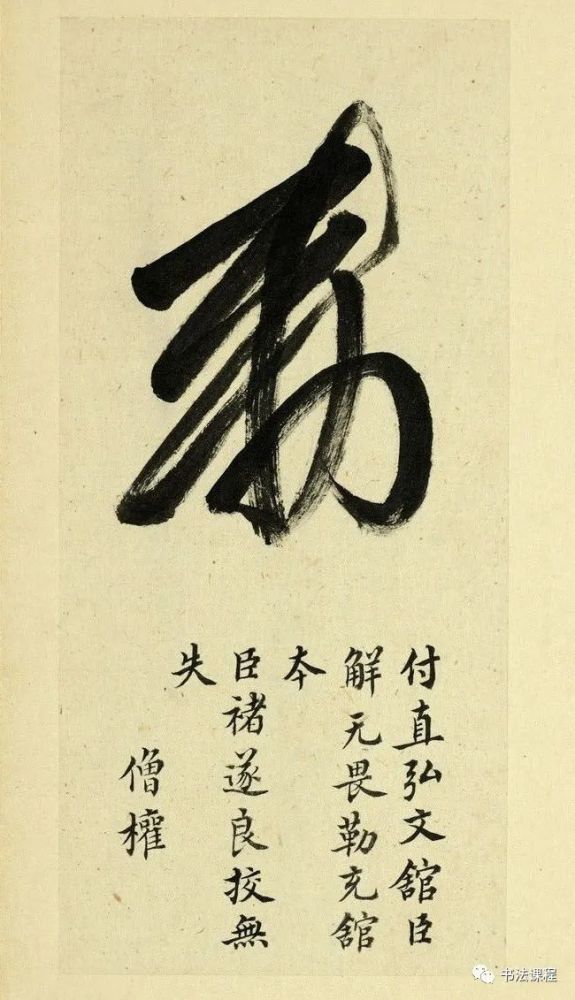 勅
付直弘文舘臣
解无畏勒充舘
本
臣褚遂良挍無
失
僧權
书法课程